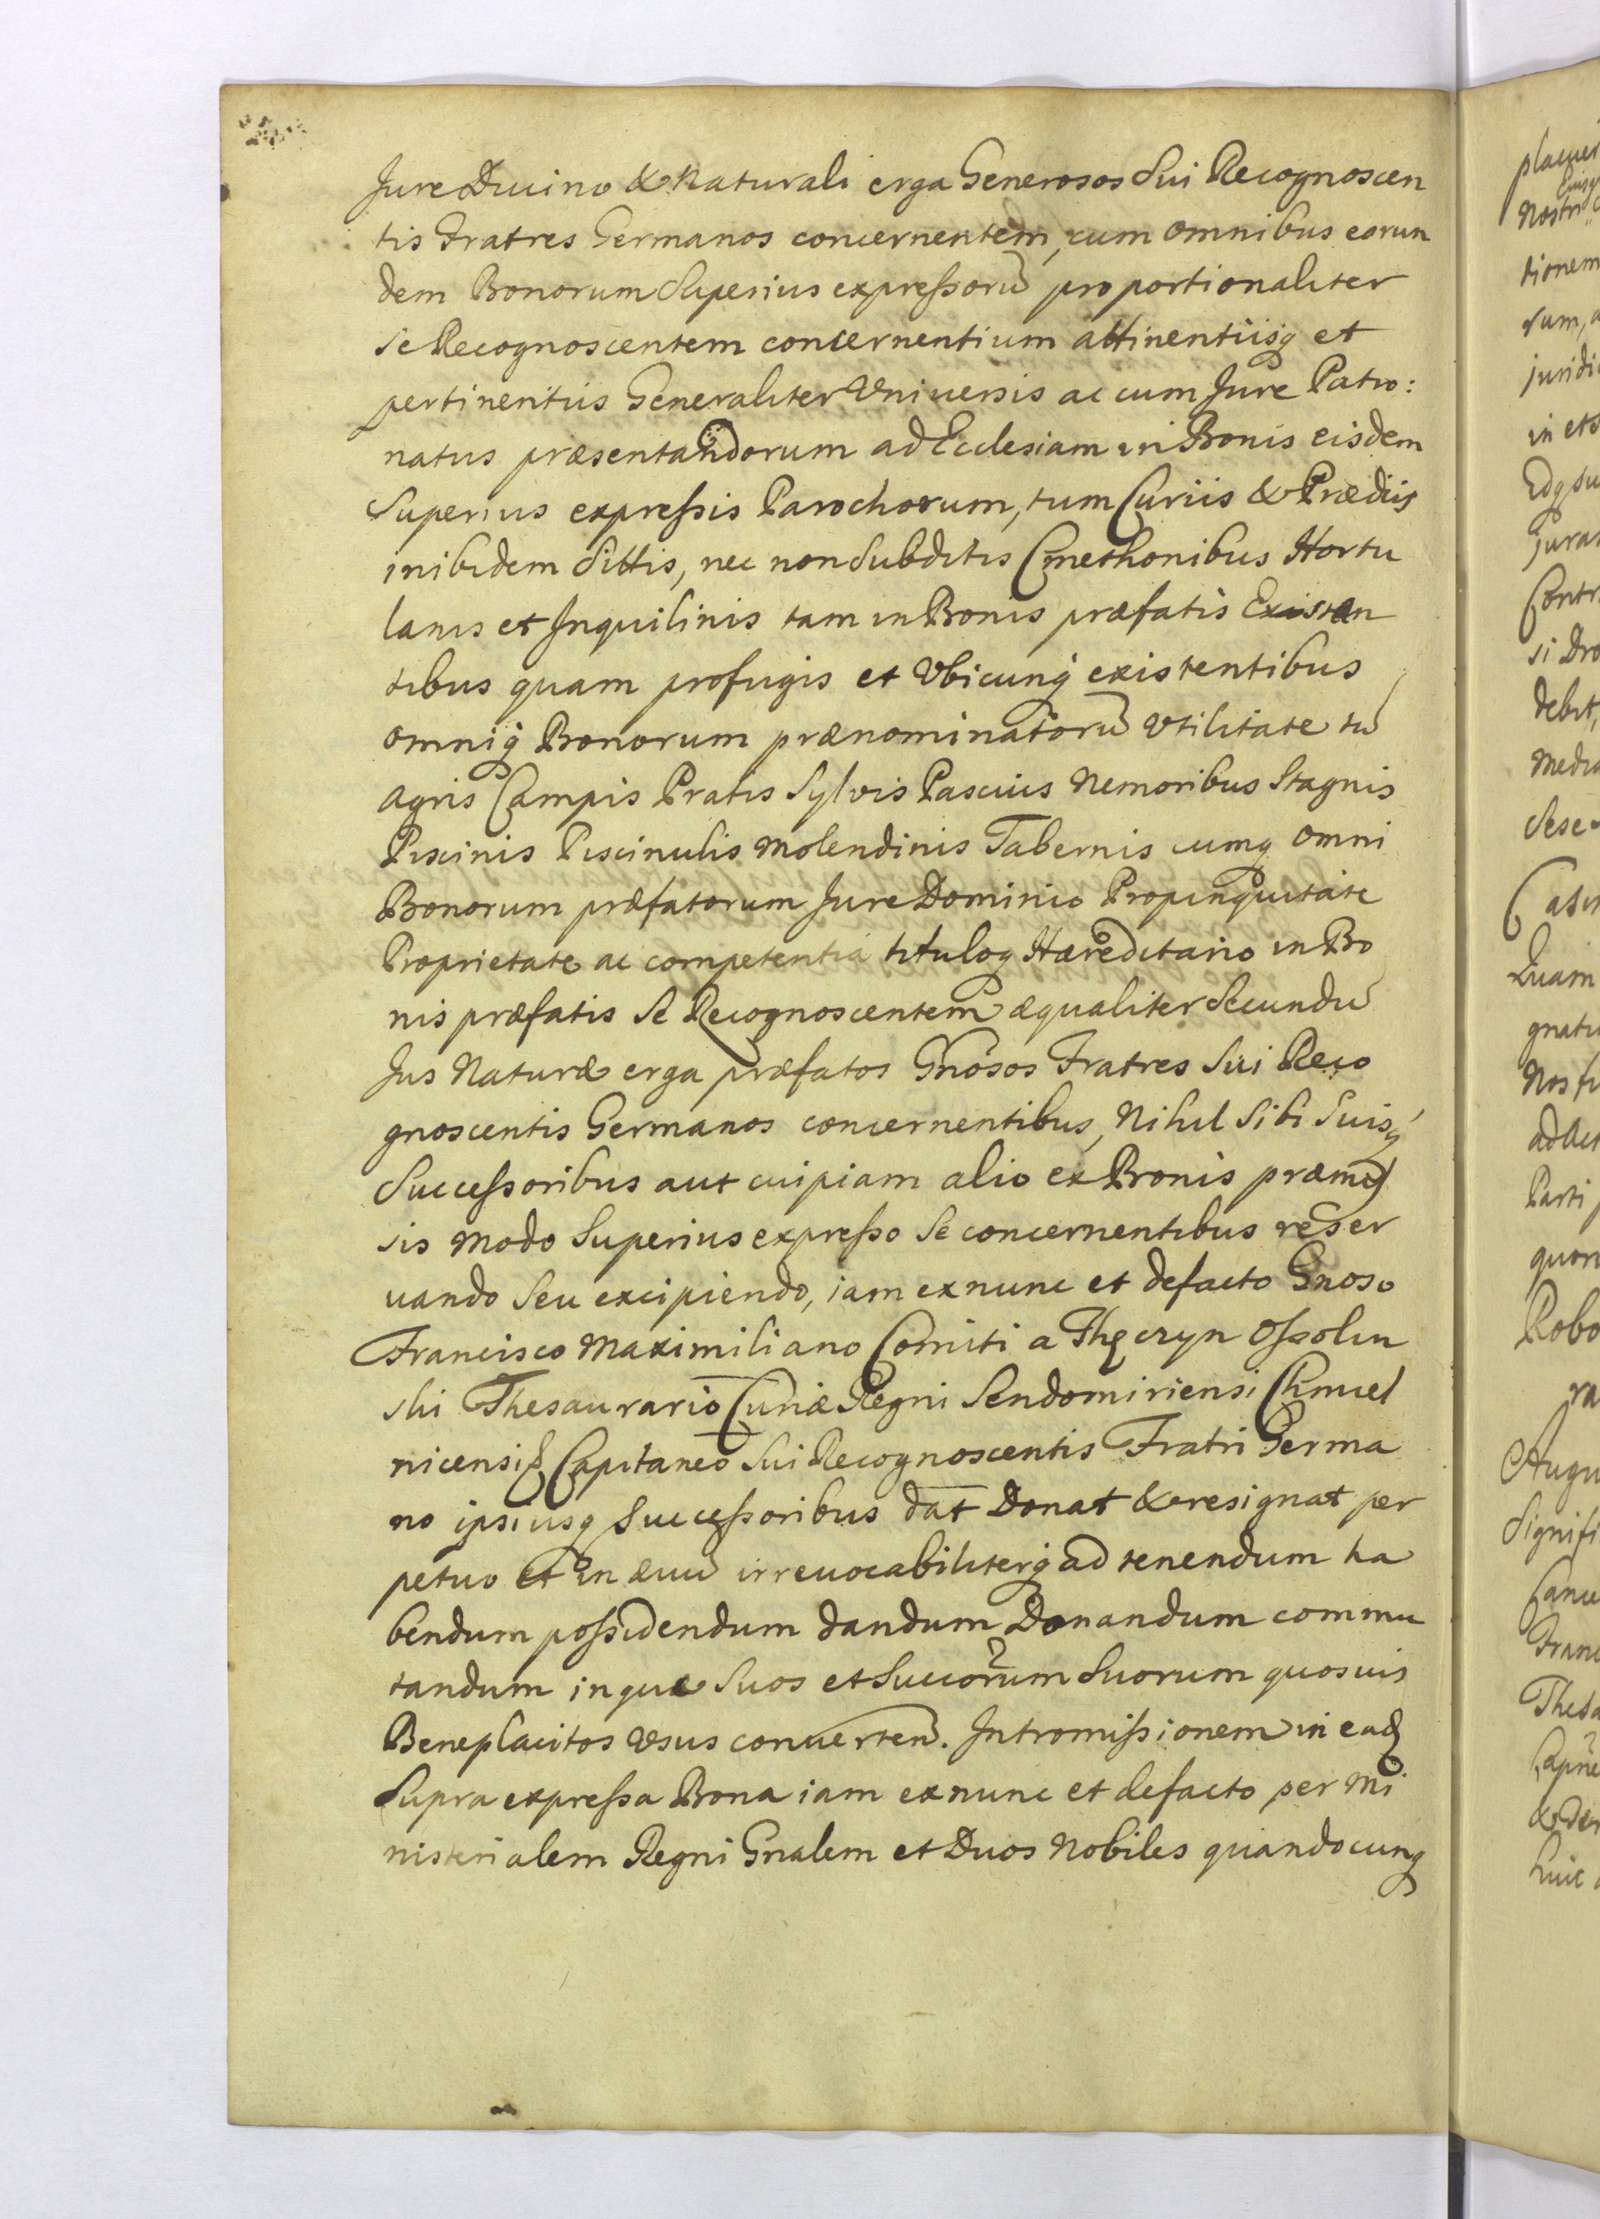 Jure Diuino & Naturali erga Generosos Sui Recognoscen
tis Fratres Germanos concernentem, cum omnibus eorun
dem Bonorum Superius expressorũ proportionaliter
Se Recognoscentem concernentium attinentiisq et
pertinentiis Generaliter Vniuersis ac cum Jure Patro:
natus præsentandorum ad Ecclesiam in Bonis eisdem
Superius expressis Parochorum, tum Curiis & Prædiis
inibidem Sittis, nec non Subditis Cmethonibus Hortu
lanis et Inquilinis tam in Bonis præfatis Existen
tibus quam profugis et Vbicunq existentibus
omniq Bonorum prænominatorũ Vtilitate tũ
Agris Campis Pratis Sylvis Pascuis Nemoribus Stagnis
Piscinis Piscinulis Molendinis Tabernis cumq omni
Bonorum præfatorum Jure Dominio Propinquitate
Proprietate ac competentia tituloq Hæreditario in Bo
nis præfatis Se Recognoscentem æqualiter Secundũ
Jus Naturæ erga præfatos Gnosos Fratres Sui Reco
gnoscentis Germanos concernentibus, Nihil Sibi Suisq
Successoribus aut cuipiam alio ex Bonis præmis
sis Modo Superius expresso Se concernentibus reser
uando Seu excipiendo, iam ex nunc et defacto Gnoso
Francisco Maximiliano Comiti a Thęczyn Ossolin
ski Thesaurario Curiæ Regni Sendomiriensi Chmiel
nicensiq Capitaneo Sui Recognoscentis Fratri Germa
no ipsiusq Successoribus dat Donat & resignat per
petuo et in æuũ irreuocabiliterq ad tenendum ha
bendum possidendum dandum Donandum commu
tandum inque Suos et Succorum Suorum quosuis
Beneplacitos Vsus conuerten. Intromissionem in eadꝫ
Supra expressa Bona iam ex nunc et defacto per Mi
nisterialem Regni Gnalem et Duos Nobiles quandocunq